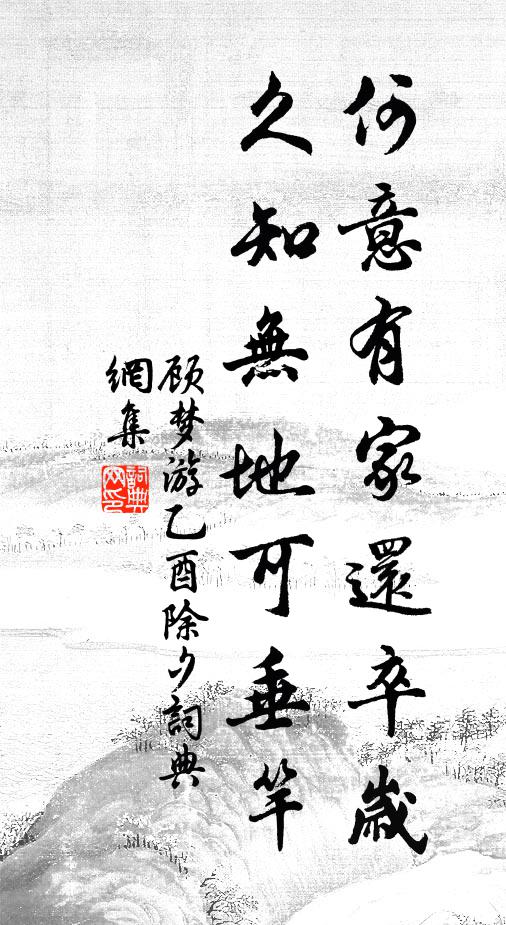 何意有家還卒歲
久知無地可垂竿
顾梦游乙酉除夕詞典
網集
詞典
网印